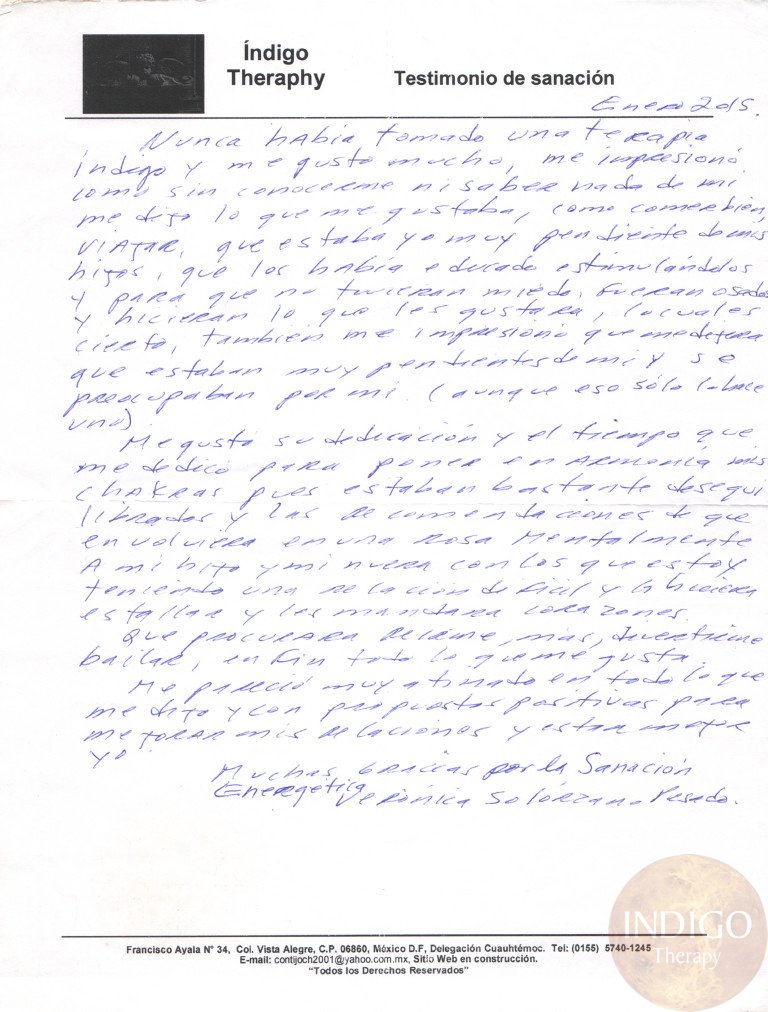 Índigo
Theraphy
Testimonio de sanación
Enero 2015.
Nunca había tomado una terapia
índigo y me gustó mucho, me impresionó
como sin conocerme ni saber nada de mi
me dijo lo que me gustaba, como comer bien,
viajar, que estaba yo muy pendiente de mis
hijos, que los había educado estimulándolos
y para que no tuvieran miedo, fueran osados
y hicieran lo que les gustara, lo cual es
cierto, también me impresionó que me dijera
que estaban muy pendientes de mi y se
preocupaban por mi. (aunque eso sólo lo hace
uno)
Me gustó su dedicación y el tiempo que
me dedicó para poner en armonía mis
chakras pues estaban bastante desequi
librados y las recomendaciones de que
envolviera en una rosa mentalmente
A mi hijo y mi nuera con los que estoy
teniendo una relación dificil y la hiciera
estallar y les mandara corazones.
Que procurara reirme, más, divertirme
bailar, en fin todo lo que me gusta.
Me pareció muy atinado en todo lo que
me dijo y con propuestas positivas para
mejorar mis relaciones y estar mejor
yo.
Muchas gracias por la Sanación
Energética Verónica Solórzano Pesado.
INDIGO
Therapy
Francisco Ayala N° 34, Col. Vista Alegre, C.P. 06860, México D.F, Delegación Cuauhtémoc. Tel: (0155) 5740-1245
E-mail: contijoch2001@yahoo.com.mx, Sitio Web en construcción.
"Todos los Derechos Reservados"